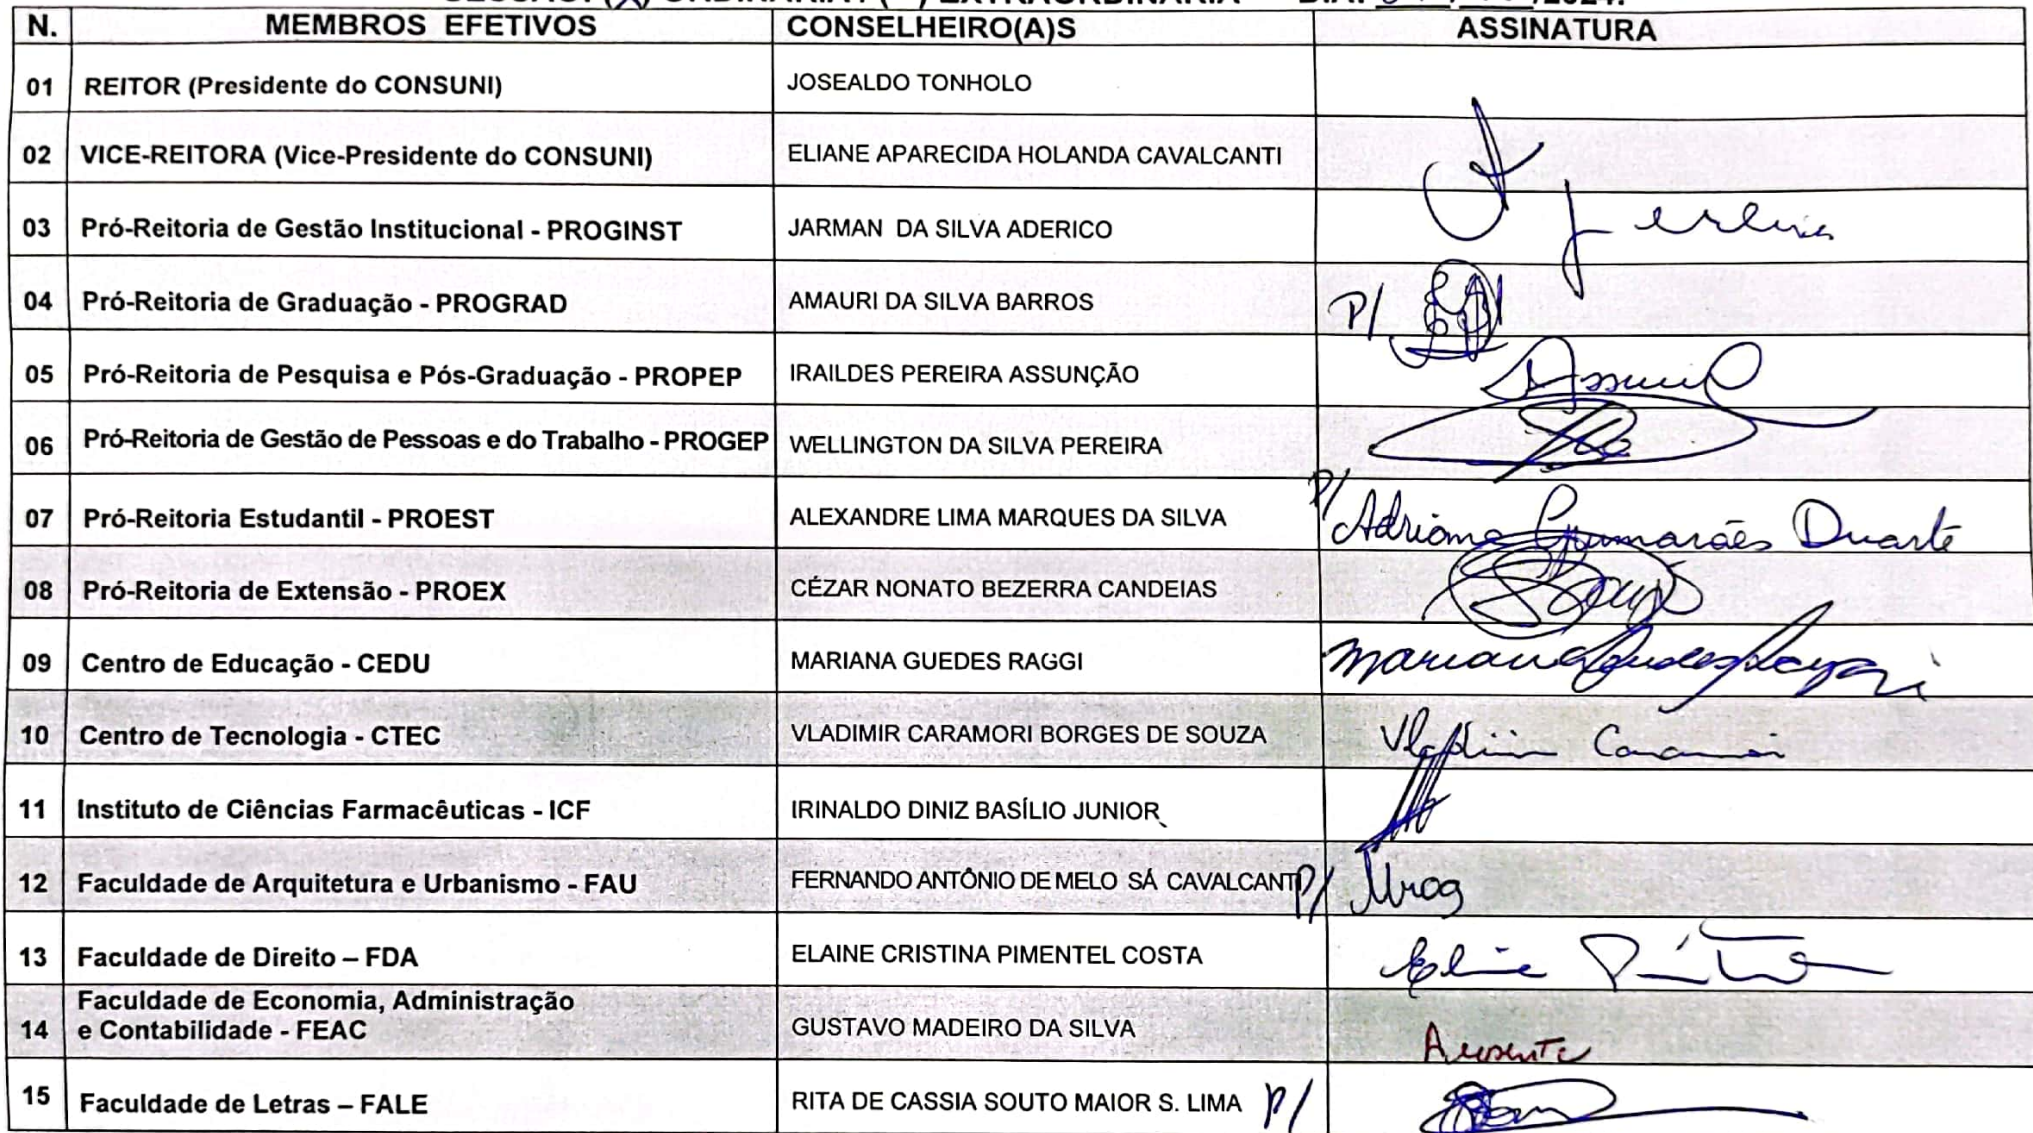 N. MEMBROS EFETIVOS CONSELHEIRO(A)S ASSINATURA
01 REITOR (Presidente do CONSUNI) JOSEALDO TONHOLO
02 VICE-REITORA (Vice-Presidente do CONSUNI) ELIANE APARECIDA HOLANDA CAVALCANTI
03 Pró-Reitoria de Gestão Institucional - PROGINST JARMAN DA SILVA ADERICO
04 Pró-Reitoria de Graduação - PROGRAD AMAURI DA SILVA BARROS P/
05 Pró-Reitoria de Pesquisa e Pós-Graduação - PROPEP IRAILDES PEREIRA ASSUNÇÃO
06 Pró-Reitoria de Gestão de Pessoas e do Trabalho - PROGEP WELLINGTON DA SILVA PEREIRA
07 Pró-Reitoria Estudantil - PROEST ALEXANDRE LIMA MARQUES DA SILVA P/ Adriana Guimarães Duarte
08 Pró-Reitoria de Extensão - PROEX CÉZAR NONATO BEZERRA CANDEIAS
09 Centro de Educação - CEDU MARIANA GUEDES RAGGI Mariana Guedes Raggi
10 Centro de Tecnologia - CTEC VLADIMIR CARAMORI BORGES DE SOUZA Vladimir Caramori
11 Instituto de Ciências Farmacêuticas - ICF IRINALDO DINIZ BASÍLIO JUNIOR
12 Faculdade de Arquitetura e Urbanismo - FAU FERNANDO ANTÔNIO DE MELO SÁ CAVALCANTI P/
13 Faculdade de Direito – FDA ELAINE CRISTINA PIMENTEL COSTA
14 Faculdade de Economia, Administração
e Contabilidade - FEAC GUSTAVO MADEIRO DA SILVA Ausente
15 Faculdade de Letras – FALE RITA DE CASSIA SOUTO MAIOR S. LIMA P/